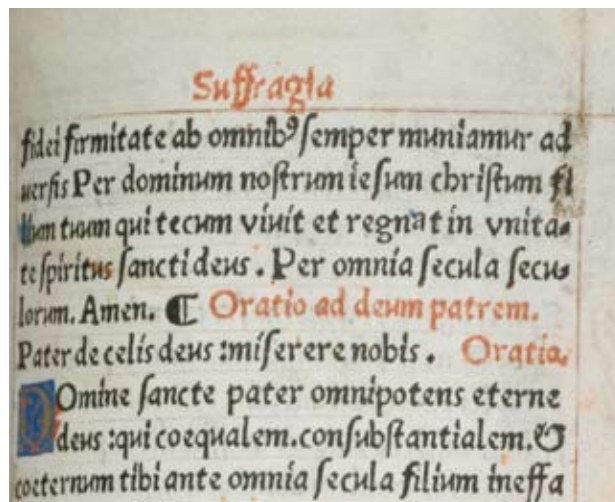 Suffragia
fidei firmitate ab omnibꝰ semper muniamur ad
uersis Per dominum nostrum iesum christum fi
lium tuum qui tecum viuit et regnat in vnita-
te spiritus sancti deus. Per omnia secula secu-
lorum. Amen. ¶ Oratio ad deum patrem.
Pater de celis deus :miserere nobis. Oratio.
Domine sancte pater omnipotens eterne
deus :qui coequalem.consubstantialem.&
coeternum tibi ante omnia secula filium ineffa